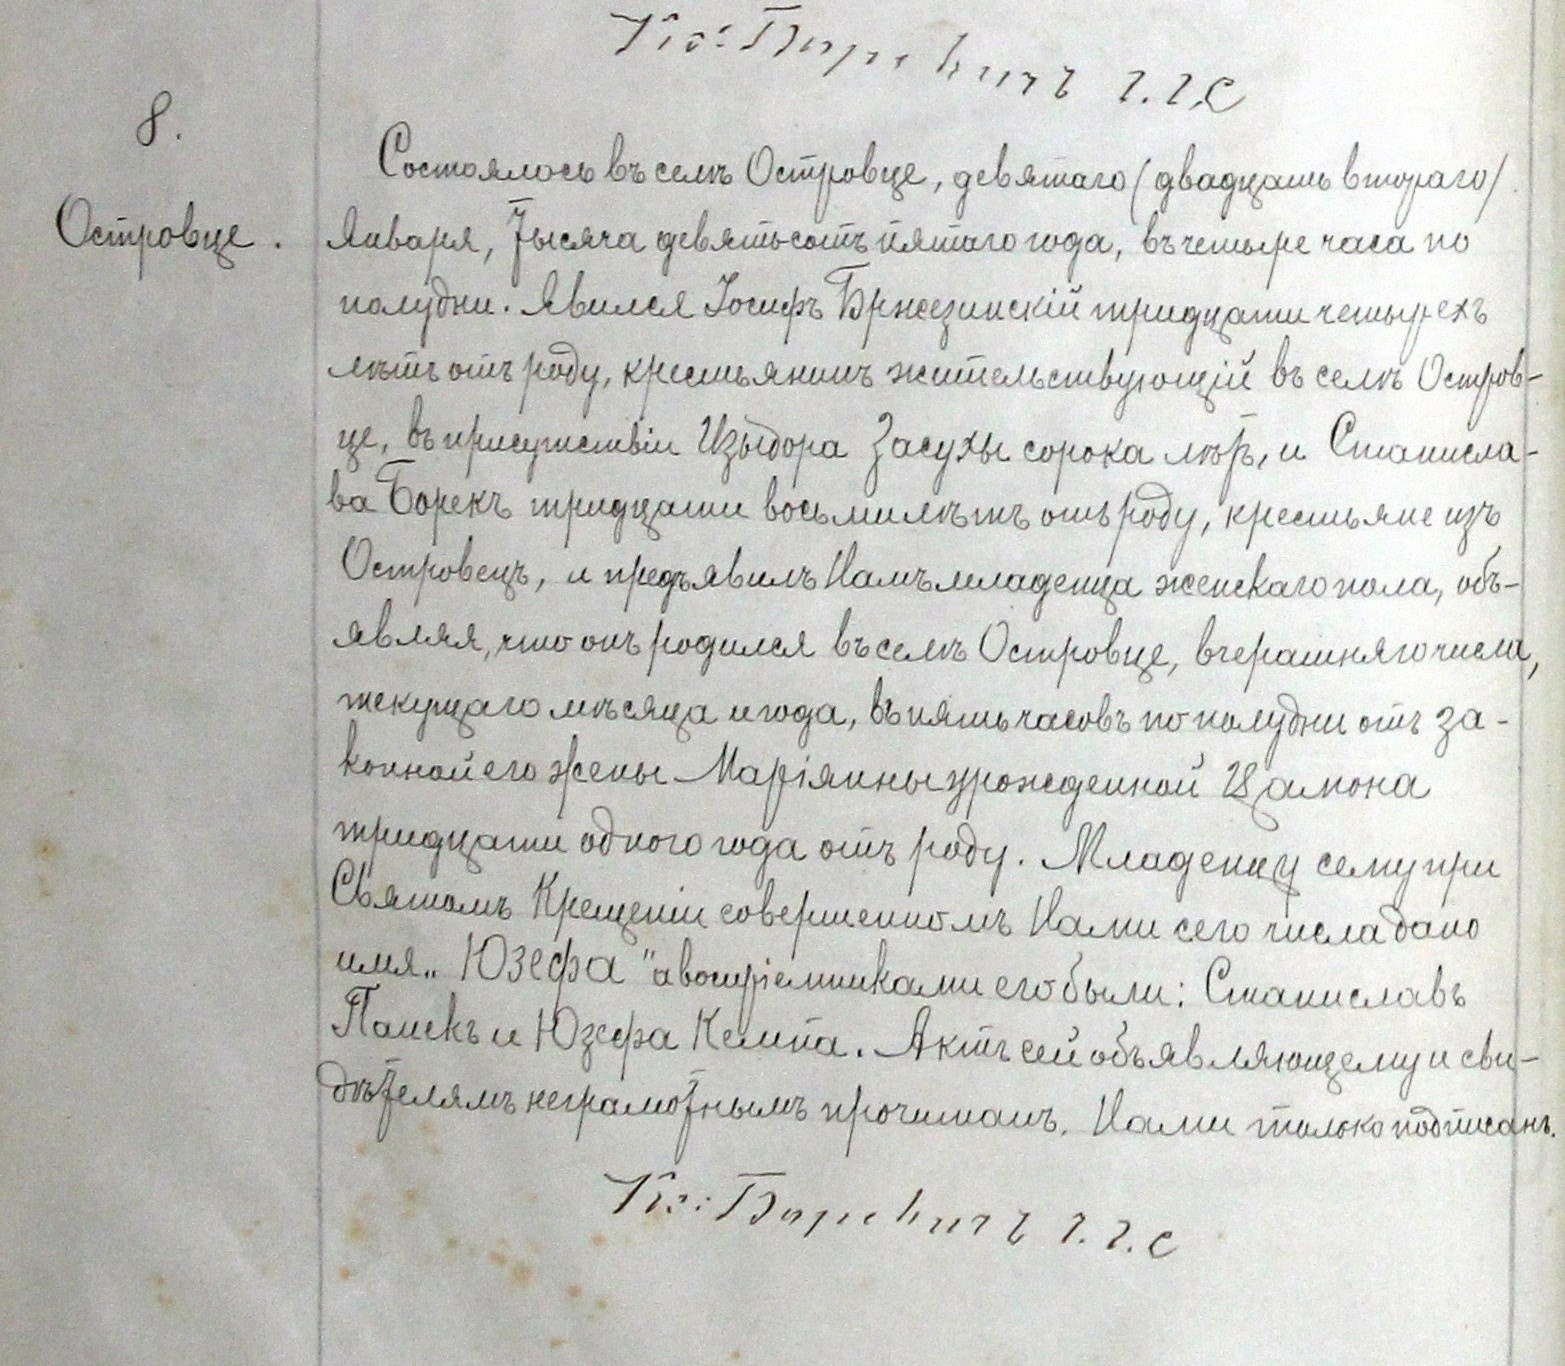 Кс: Боревичъ
8.
Островце.
Состоялось въ селѣ Островце, девятаго (двадцать втораго)
Января, Тысяча девятьсотъ пятаго года, въ четыре часа по
полудни. Явился Іосифъ Бржезинскій тридцати четырехъ
лѣтъ отъ роду, крестьянинъ жительствующій въ селѣ Остров-
це, въ присутствіи Изыдора Засухы сорока лѣтъ, и Станисла-
ва Борекъ тридцати восьми лѣтъ отъ роду, крестьяне изъ
Островецъ, и предъявилъ Намъ младенца женскаго пола, объ-
являя, что онъ родился въ селѣ Островце, вчерашняго числа,
текущаго мѣсяца и года, въ пять часовъ по полудни отъ за-
конной его жены Маріянны урожденной Цамона
тридцати одного года отъ роду. Младенцу сему при
Святомъ Крещеніи совершенномъ Нами сего числа дано
имя „Юзефа" а воспріемниками его были: Станиславъ
Панекъ и Юзефа Кемпа. Актъ сей объявляющему и сви-
дѣтелямъ неграмотнымъ прочитанъ. Нами только подписанъ.
Кс: Боревичъ